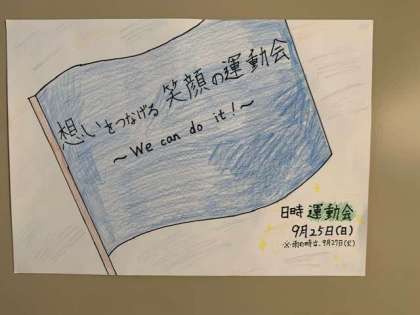 想いをつなげる 笑顔の運動会
～We can do it!～
日時 運動会
9月25日(日)
※雨の時は、9月27日(火)